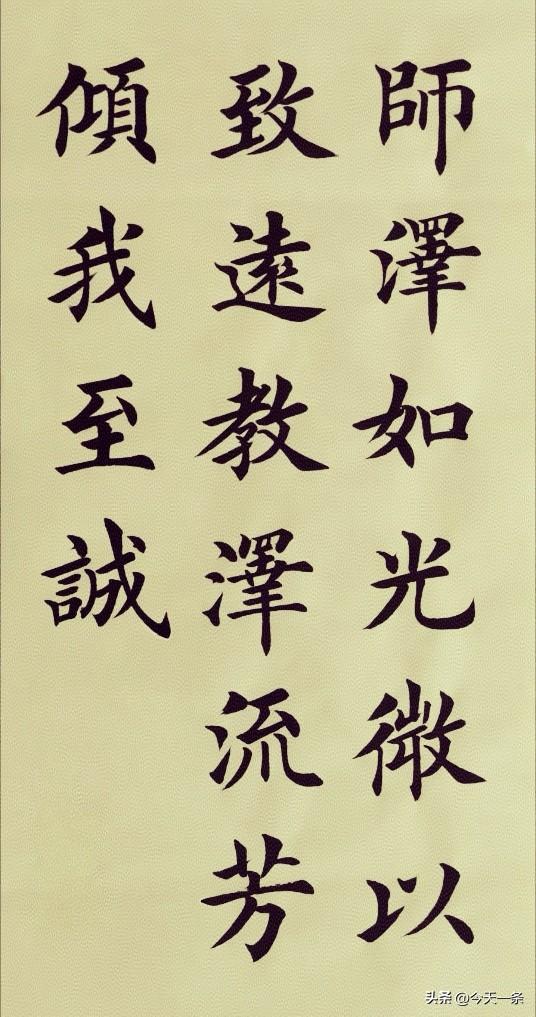 師澤如光微以
致遠教澤流芳
傾我至誠
头条 @今天一条